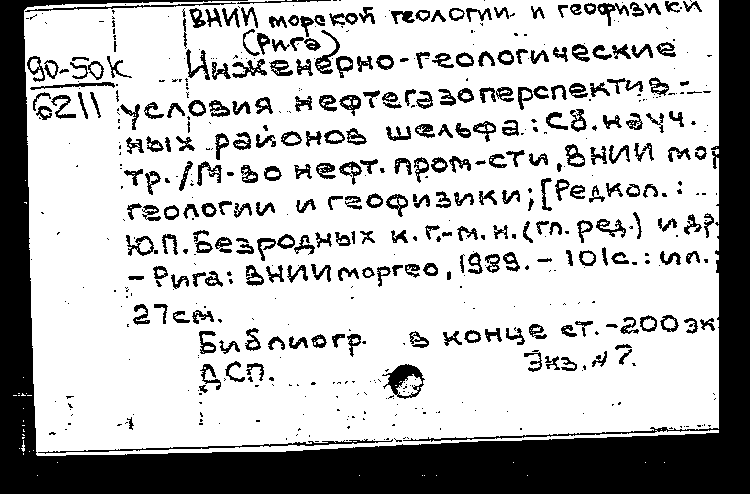 ВНИИ морской геологии и геофизики
(Рига)
90-50К
6211
Инженерно-геологические
условия нефтегазоперспектив-
ных районов шельфа: Сб. науч.
тр./М-во нефт. пром-сти, ВНИИ мор
геологии и геофизики; [Редкол.:
Ю.П. Безродных к. г.-м. н. (гл. ред.) и др.
- Рига: ВНИИморгео, 1989. - 101с.: ил.;
27см.
Библиогр. в конце ст. - 200 экз
ДСП. Экз. N 7.